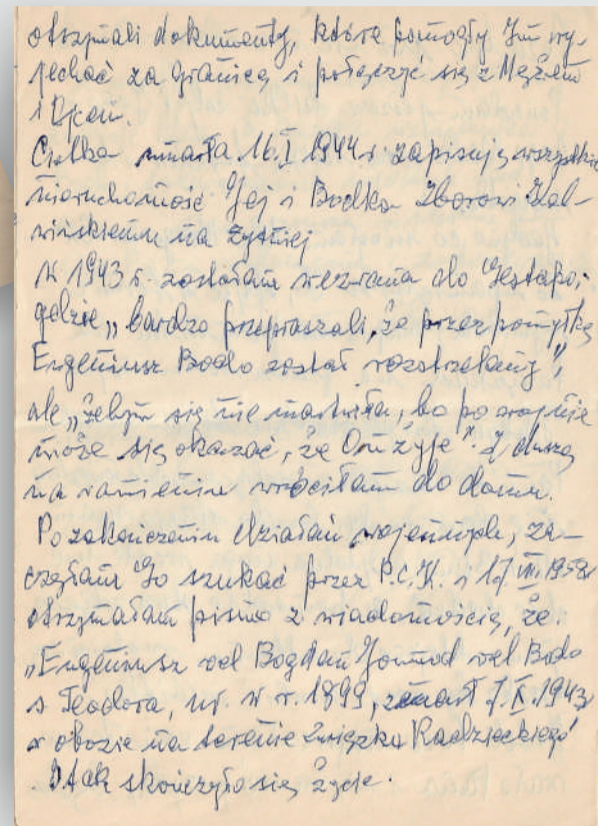 otrzymali dokumenty, które pomogły Im wy-
jechać za granicę i połączyć się z Mężem
i Ojcem.
Ciotka zmarła 16.I 1944 r. zapisując wszystkie
nieruchomość Jej i Bodka Zborowi Kal-
wińskiemu na Żytniej
W 1943 r. zostałam wezwana do Gestapo,
gdzie „bardzo przepraszali, że przez pomyłkę
Eugeniusz Bodo został rozstrzelany",
ale „żebym się nie martwiła, bo po wojnie
może się okazać, że On żyje". Z duszą
na ramieniu wróciłam do domu.
Po zakończeniu działań wojennych, za-
częłam Go szukać przez P.C.K. i 17 1958
otrzymałam pismo z wiadomością, że
„Eugeniusz vel Bogdan Junod vel Bodo
s Teodora, ur. w r. 1899, zmarł 7.X.1943
w obozie na terenie Związku Radzieckiego"
I tak skończyło się życie.